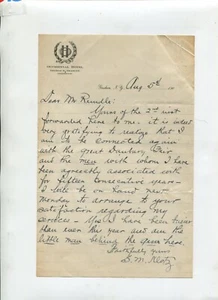 Aug 5th
Dear Mr Rundle:
Yours of the 3rd inst
forwarded here to me. it is indeed
very gratifying to realize that I
am to be connected again
with the great Danbury Fair
and the men with whom I have
been agreeably associated with
for fifteen consecutive years—
I will be on hand
Monday to arrange to your
satisfaction regarding my
services — Mrs
Ham even this year and see the
little man behind the
Faithfully yours